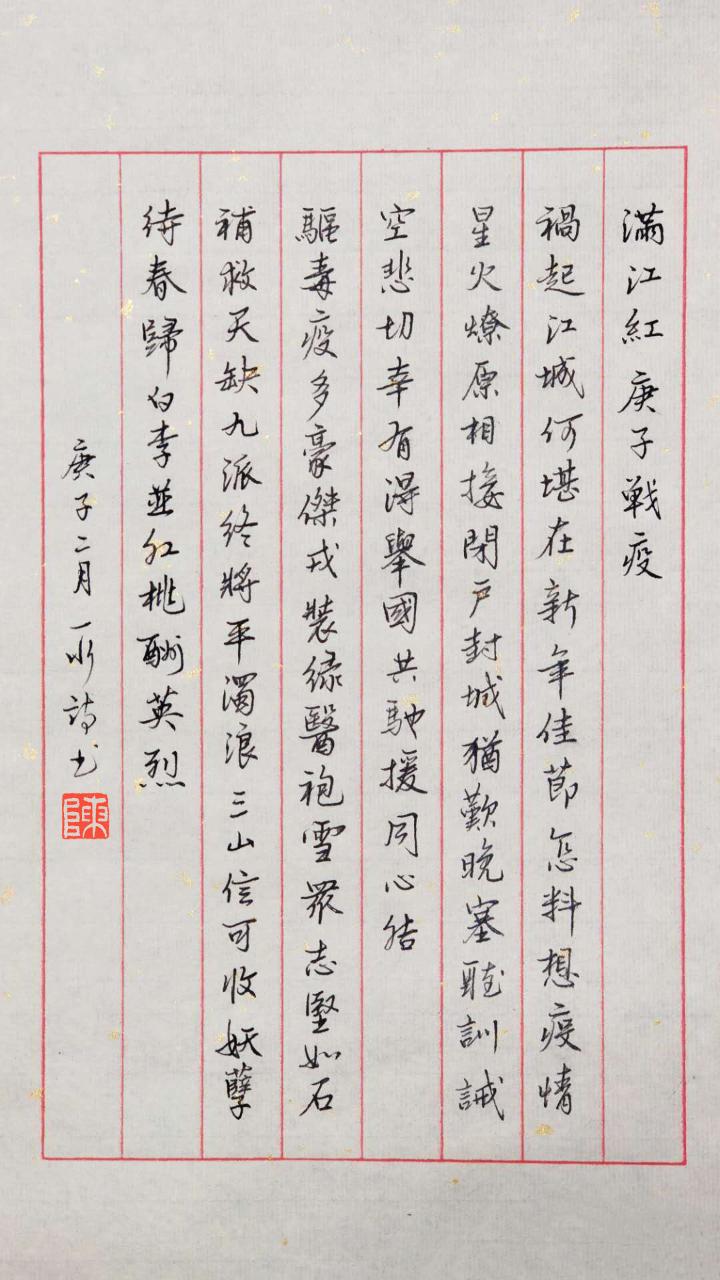 滿江紅 庚子戰疫
禍起江城何堪在新年佳節怎料想疫情
星火燎原相接閉戶封城猶歎晚塞聽訓誡
空悲切幸有得舉國共馳援同心結
驅毒疫多豪傑戎裝绿醫袍雪眾志堅如石
補救天缺九派終將平濁浪三山信可收妖孽
待春歸白李並红桃酬英烈
庚子二月 一水詩书
陳